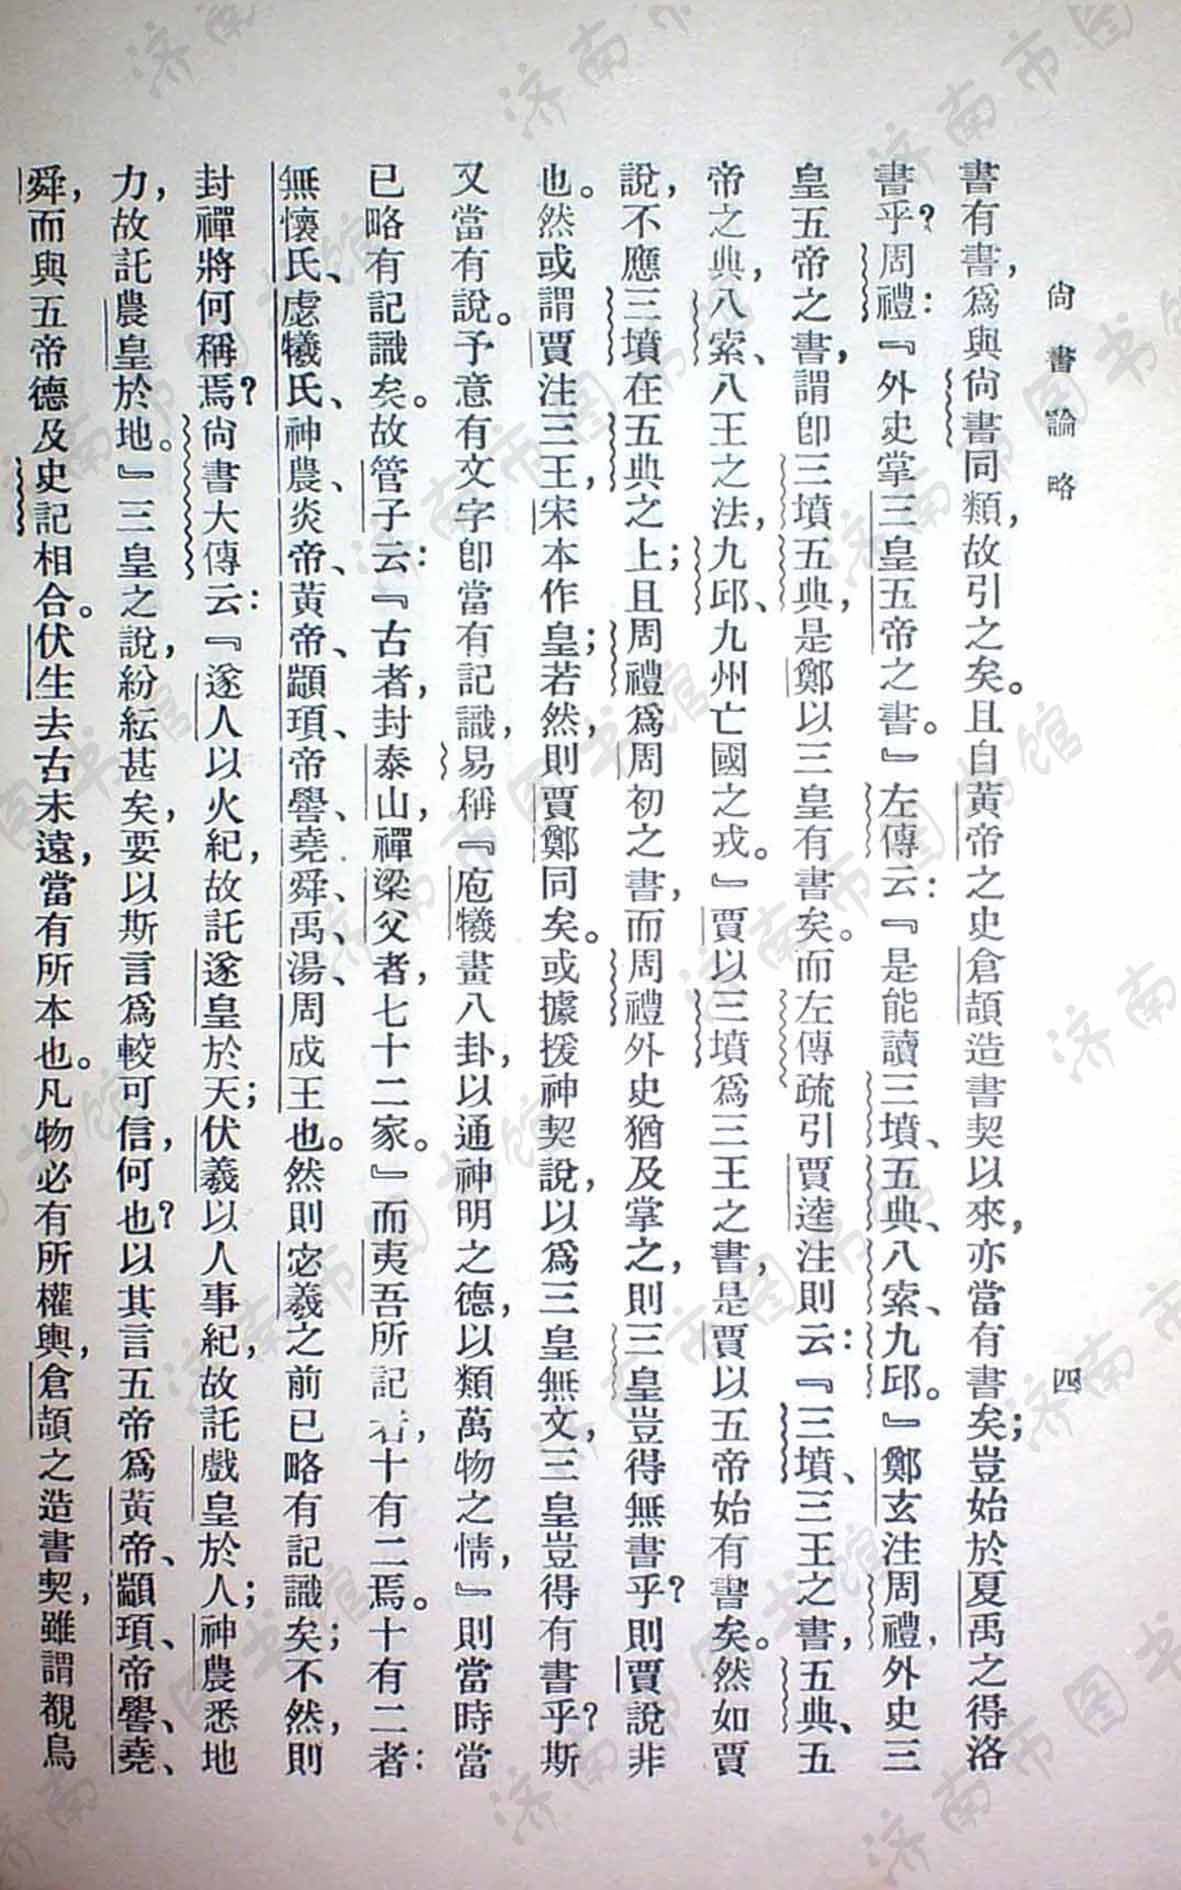 尙書論略
四
書有書，爲與尙書同類，故引之矣。且自黃帝之史倉頡造書契以來，亦當有書矣；豈始於夏禹之得洛
書乎？周禮：『外史掌三皇五帝之書。』左傳云：『是能讀三墳、五典、八索、九邱。』鄭玄注周禮，外史三
皇五帝之書，謂卽三墳五典，是鄭以三皇有書矣。而左傳疏引賈逵注則云：『三墳、三王之書，五典、五
帝之典，八索、八王之法，九邱、九州亡國之戎。』賈以三墳爲三王之書，是賈以五帝始有書矣。然如賈
說，不應三墳在五典之上；且周禮爲周初之書，而周禮外史猶及掌之，則三皇豈得無書乎？則賈說非
也。然或謂賈注三王，宋本作皇；若然，則賈鄭同矣。或據援神契說，以爲三皇無文，三皇豈得有書乎？斯
又當有說。予意有文字卽當有記識，易稱『庖犧畫八卦，以通神明之德，以類萬物之情，』則當時當
已略有記識矣。故管子云：『古者，封泰山，禪梁父者，七十二家。』而夷吾所記者，十有二焉。十有二者：
無懷氏、虙犧氏、神農、炎帝、黃帝、顓頊、帝嚳、堯、舜、禹、湯、周成王也。然則宓羲之前已略有記識矣；不然，則
封禪將何稱焉？尙書大傳云：『遂人以火紀，故託遂皇於天；伏羲以人事紀，故託戲皇於人；神農悉地
力，故託農皇於地。』三皇之說，紛紜甚矣，要以斯言爲較可信，何也？以其言五帝爲黃帝、顓頊、帝嚳、堯、
舜，而與五帝德及史記相合。伏生去古未遠，當有所本也。凡物必有所權輿，倉頡之造書契，雖謂覩鳥
济南市图书馆